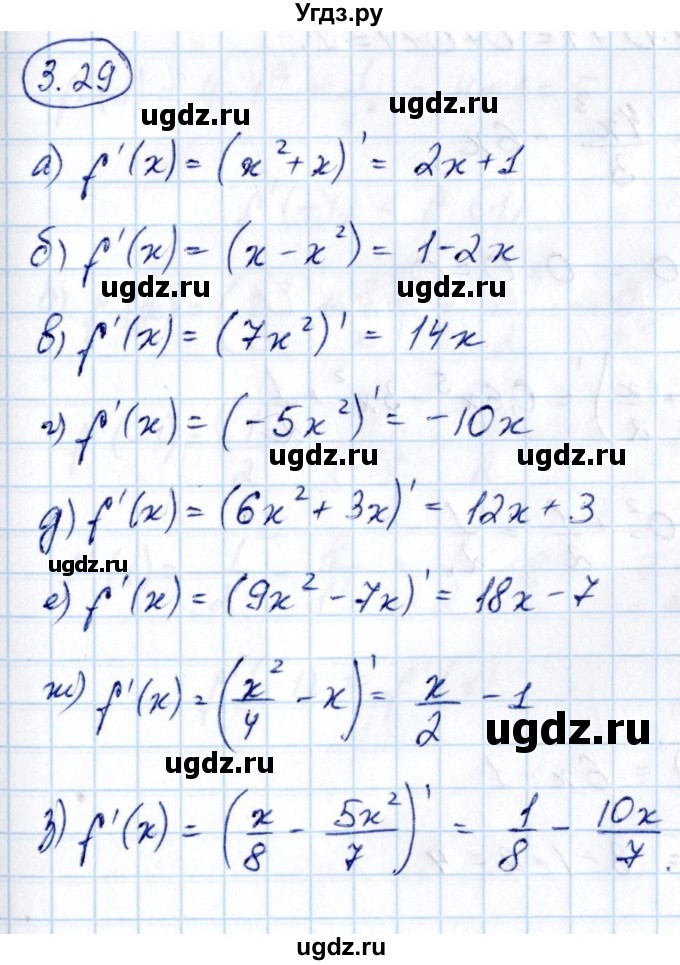 Угдз.ру
3.29
ugdz.ru ugdz.ru
а) f'(x) = (x² + x)' = 2x + 1
б) f'(x) = (x - x²) = 1 - 2x
ugdz.ru ugdz.ru
в) f'(x) = (7x²)' = 14x
г) f'(x) = (-5x²)' = -10x
ugdz.ru ugdz.ru
д) f'(x) = (6x² + 3x)' = 12x + 3
ugdz.ru
е) f'(x) = (9x² - 7x)' = 18x - 7
ж) f'(x) = (x²/4 - x)' = x/2 - 1
ugdz.ru ugdz.ru
з) f'(x) = (x/8 - 5x²/7)' = 1/8 - 10x/7.
ugdz.ru